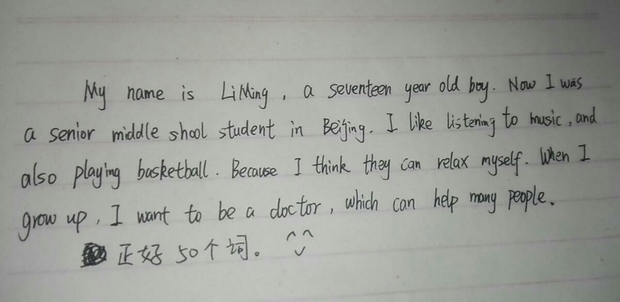 My name is LiMing, a seventeen year old boy. Now I was
a senior middle shool student in Beijing. I like listening to music, and
also playing basketball. Because I think they can relax myself. When I
grow up, I want to be a doctor, which can help many people.
正好50个词。